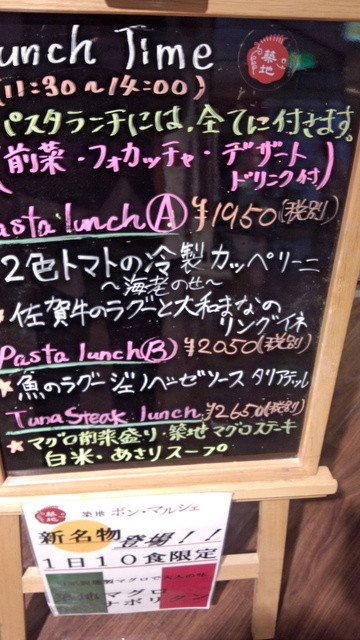 Lunch Time
築地
(11:30〜14:00)
パスタランチには、全てに付きます。
(前菜・フォカッチャ・デザート
ドリンク付)
Pasta lunch Ⓐ ¥1950(税別)
2色トマトの冷製カッペリーニ
〜海老のせ〜
佐賀牛のラグーと大和まなの
リングイネ
Pasta lunch Ⓑ ¥2050(税別)
魚のラグー ジェノベーゼソース タリアテッレ
Tuna Steak lunch ¥2650(税別)
マグロ前菜盛り・築地マグロステーキ
白米・あさりスープ
築地 ボン・マルシェ
新名物登場!!
1日10食限定
製マグロで大人の味
築地マグロ
ナポリタン